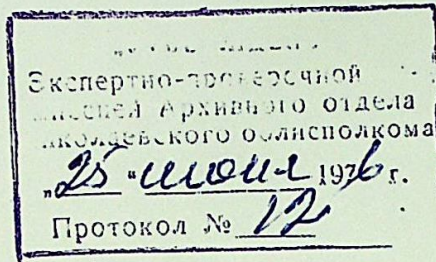 Экспертно-проверочной
Архивного отдела
облисполкома
„25“ июня 1976 г.
Протокол № 12